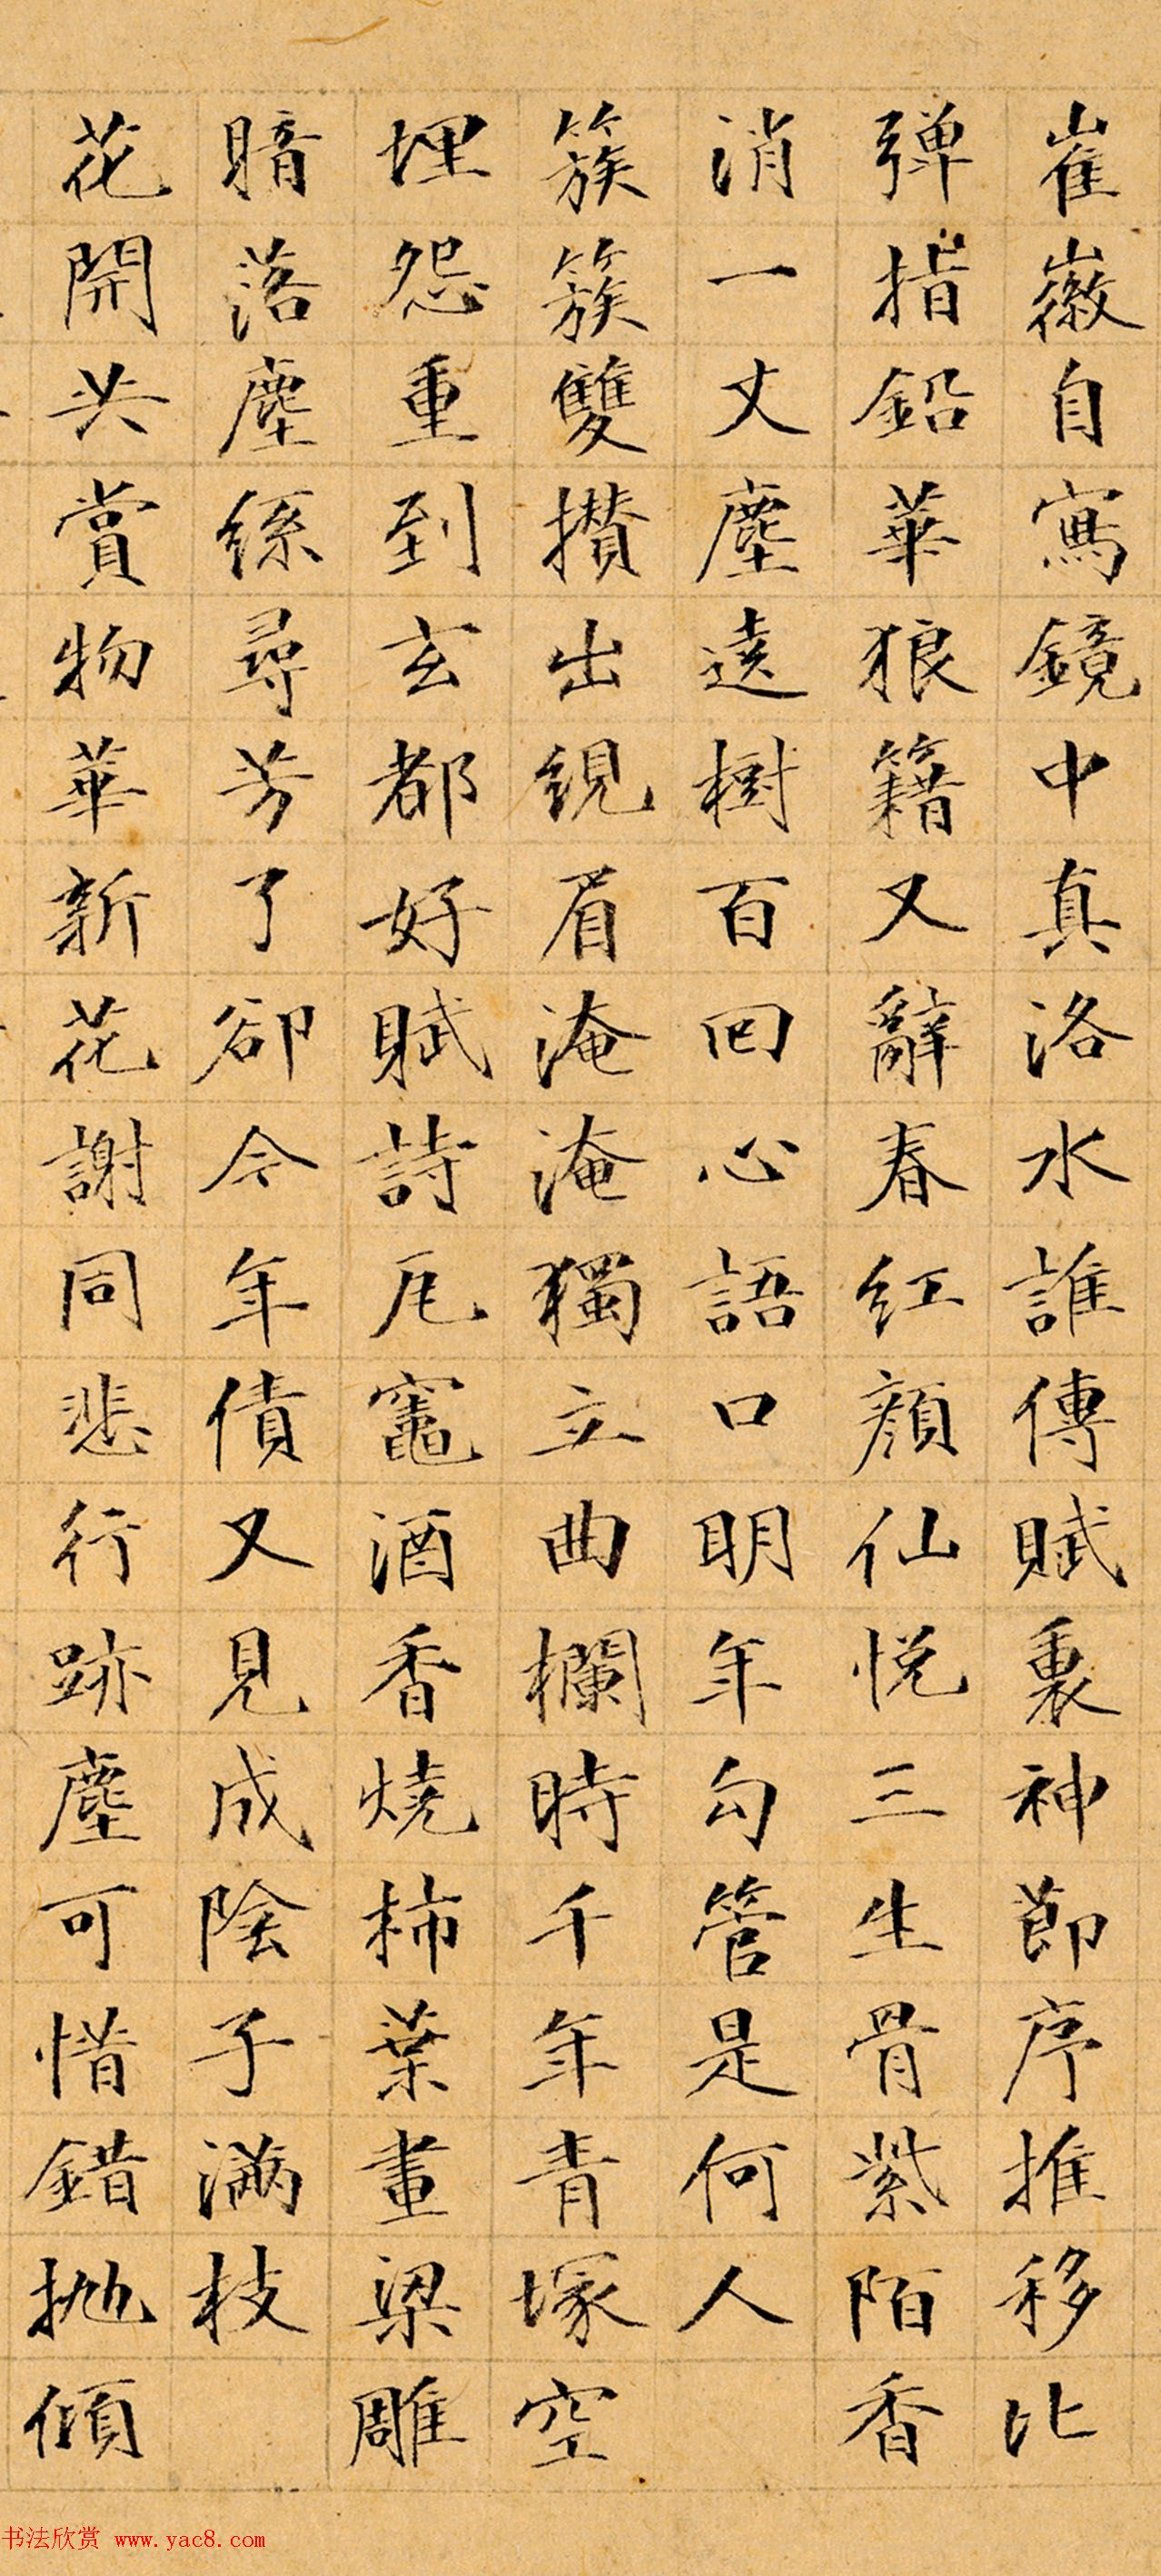 崔徽自寫鏡中真洛水誰傳賦裏神節序推移比
彈指鉛華狼籍又辭春紅顏仙悅三生骨紫陌香
消一丈塵遶樹百回心語口明年勾管是何人
簇簇雙攢出繭眉淹淹獨立曲欄時千年青塚空
埋怨重到玄都好賦詩瓦竈酒香燒柿葉畫梁雕
暗落塵絲尋芳了卻今年債又見成陰子滿枝
花開共賞物華新花謝同悲行跡塵可惜錯拋傾
书法欣赏 www.yac8.com